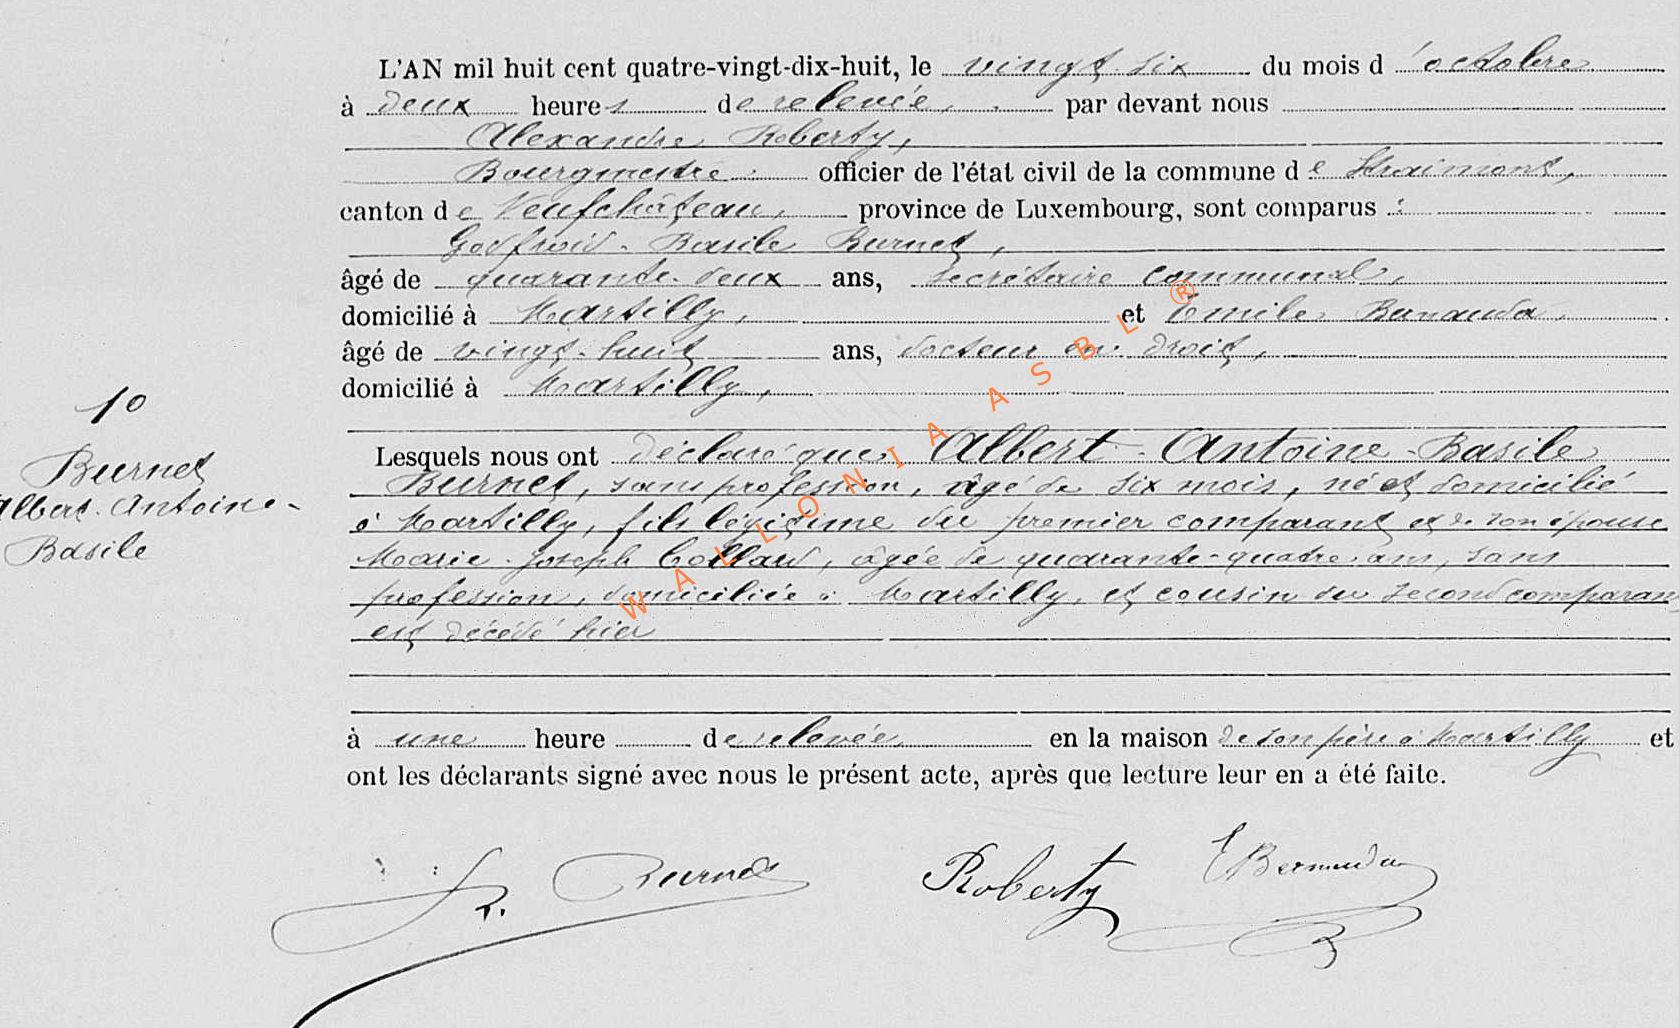 L'AN mil huit cent quatre-vingt-dix-huit, le vingt-six du mois d'octobre
à deux heures de relevée, par devant nous
Alexandre Roberty,
Bourgmestre officier de l'état civil de la commune de Straimont,
canton de Neufchâteau, province de Luxembourg, sont comparus :
Godfroid-Basile Burnet,
âgé de quarante-deux ans, secrétaire communal,
domicilié à Martilly, et Emile
âgé de vingt-huit ans, docteur en droit,
domicilié à Martilly,
10
Burnet
Albert-Antoine-
Basile
Lesquels nous ont déclaré que Albert-Antoine-Basile
Burnet, sans profession, âgé de six mois, né et domicilié
à Martilly, fils légitime du premier comparant et de son épouse
Marie-Joseph Collard, âgée de quarante-quatre ans, sans
profession, domiciliée à Martilly, et cousin du second comparant
est décédé hier
à une heure de relevée en la maison de son père à Martilly et
ont les déclarants signé avec nous le présent acte, après que lecture leur en a été faite.
Burnet Roberty
WALLONIA ASBL ®